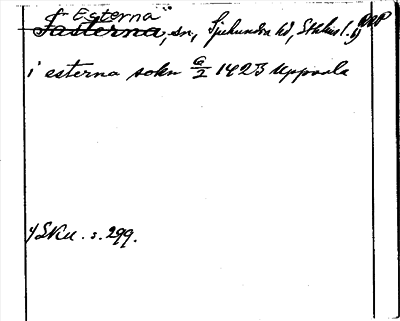 "Esterna"
Fasterna, sn, Sjuhundra hd, Sthlms l. 1)
i esterna sokn 6/2 1423 Uppsala
1) SRU. s. 299.